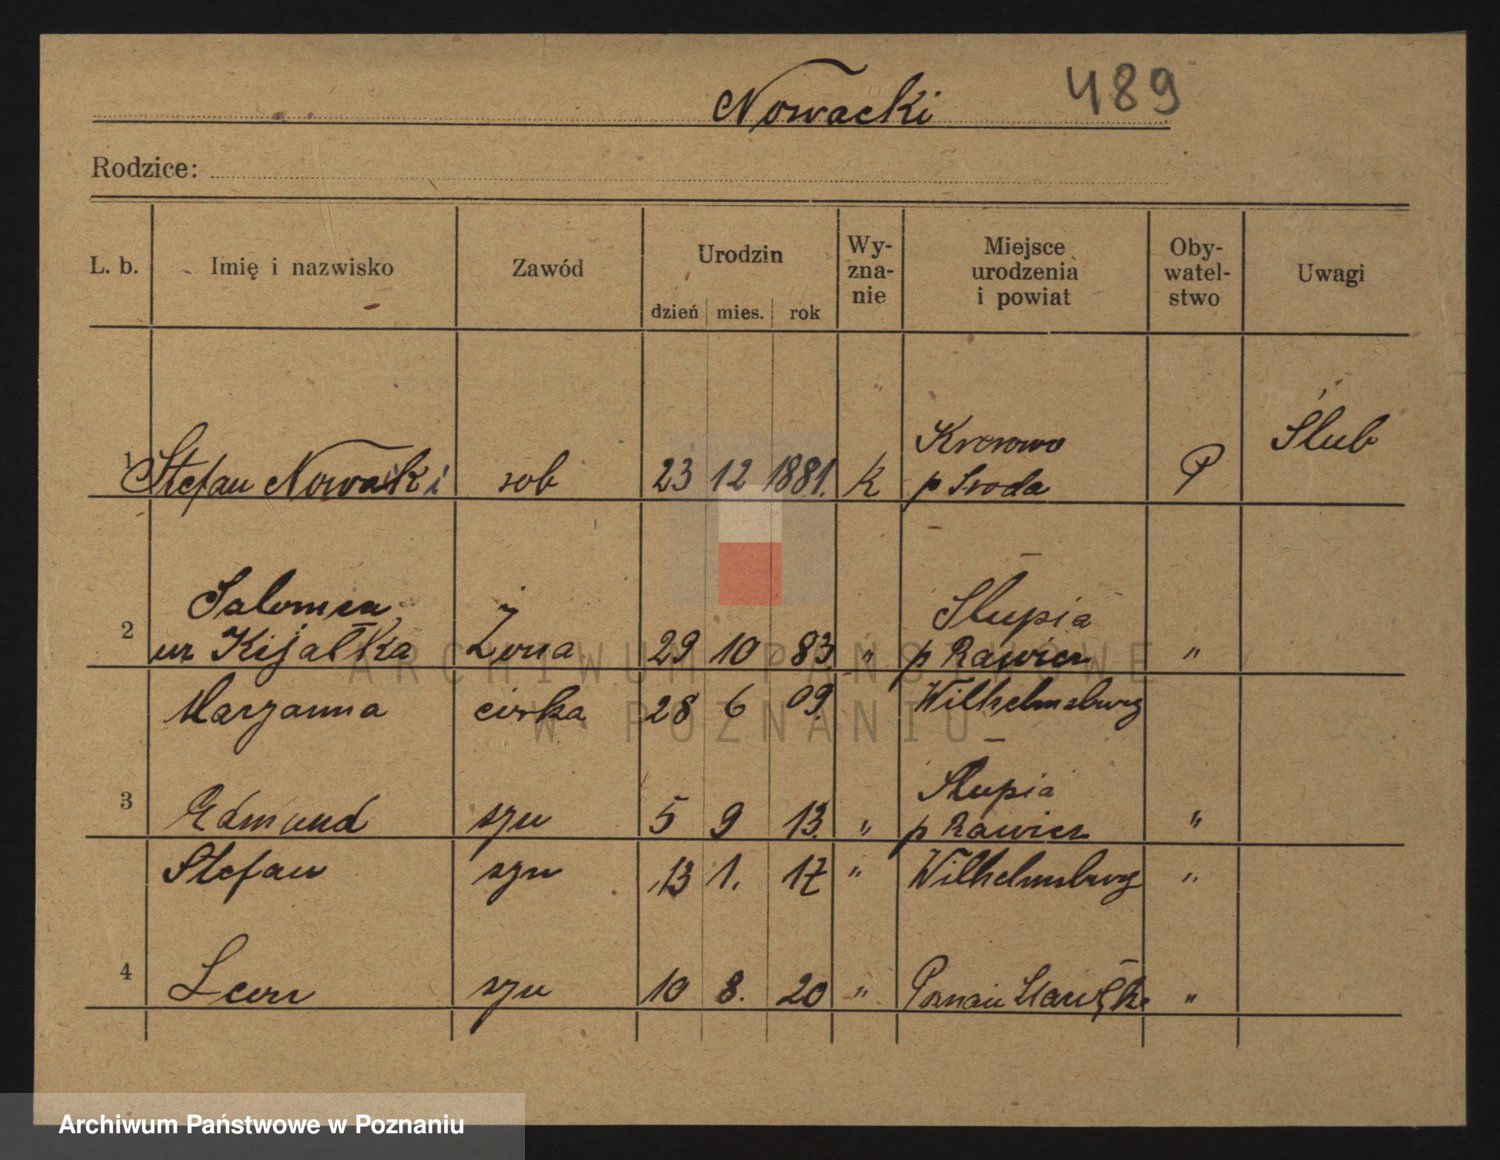 Nowacki 489
Rodzice:
L. b. Imię i nazwisko Zawód Urodzin dzień mies. rok Wy-zna-nie Miejsce urodzenia i powiat Oby-watel-stwo Uwagi
Krerowo Ślub
1 Stefan Nowacki rob 23 12 1881. k p Sroda P
Salomea Słupia
2 ur Kijałka Żona 29 10 83. " p Rawicz "
Maryanna cirka 28 6 09. Wilhelmsburg
Słupia
3 Edmund syn 5 9 13. " p Rawicz "
Stefan syn 13 1. 17 " Wilhelmsburg "
4 Leon syn 10 8. 20 " Poznań "
ARCHIWUM PAŃSTWOWE
W POZNANIU
Archiwum Państwowe w Poznaniu